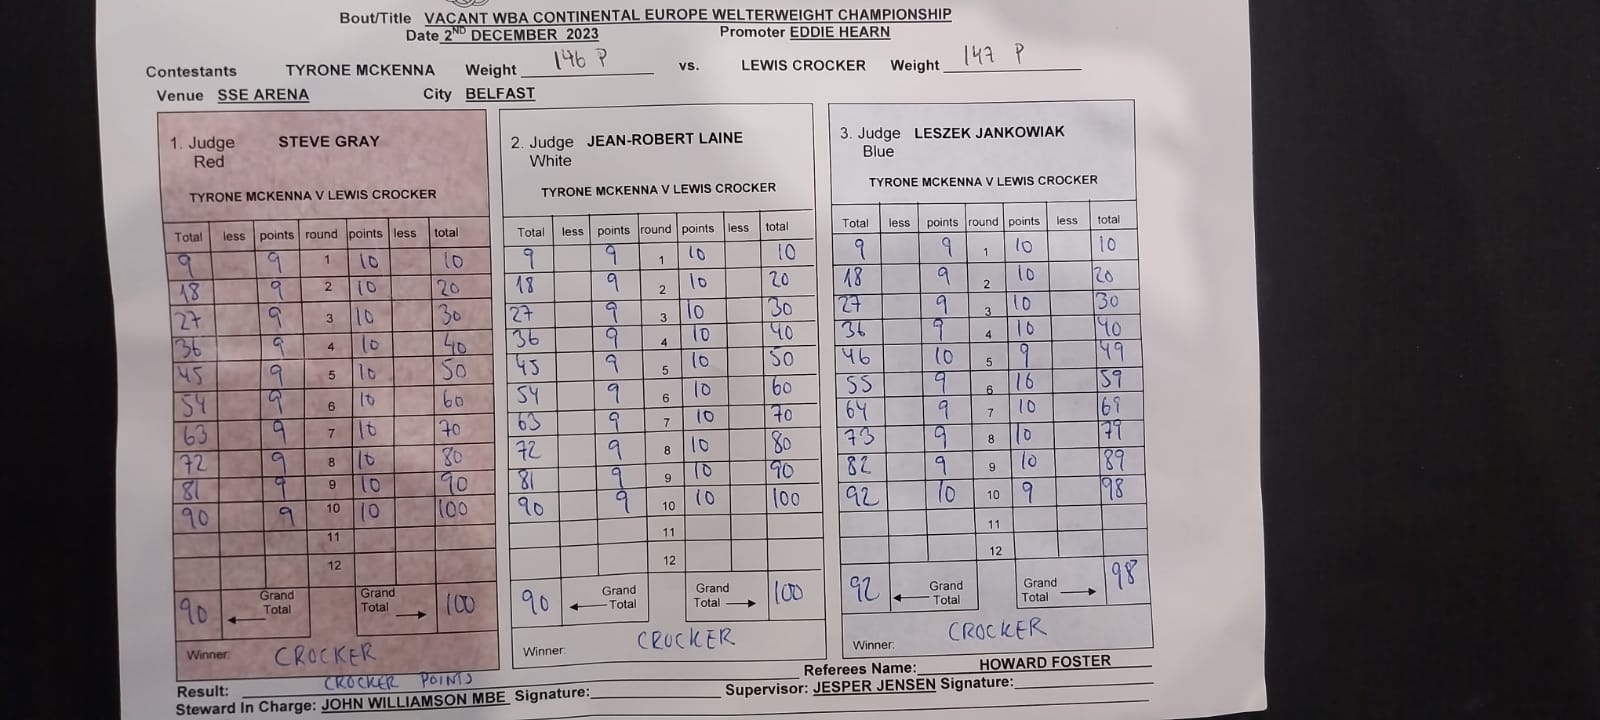 Bout/Title VACANT WBA CONTINENTAL EUROPE WELTERWEIGHT CHAMPIONSHIP
Date 2ND DECEMBER 2023 Promoter EDDIE HEARN
Contestants TYRONE MCKENNA Weight 146 P vs. LEWIS CROCKER Weight 147 P
Venue SSE ARENA City BELFAST
1. Judge STEVE GRAY
Red
TYRONE MCKENNA V LEWIS CROCKER
Total less points round points less total
9 9 1 10 10
18 9 2 10 20
27 9 3 10 30
36 9 4 10 40
45 9 5 10 50
54 9 6 10 60
63 9 7 10 70
72 9 8 10 80
81 9 9 10 90
90 9 10 10 100
11
12
90 Grand Total Grand Total 100
Winner: CROCKER
2. Judge JEAN-ROBERT LAINE
White
TYRONE MCKENNA V LEWIS CROCKER
Total less points round points less total
9 9 1 10 10
18 9 2 10 20
27 9 3 10 30
36 9 4 10 40
45 9 5 10 50
54 9 6 10 60
63 9 7 10 70
72 9 8 10 80
81 9 9 10 90
90 9 10 10 100
11
12
90 Grand Total Grand Total 100
Winner: CROCKER
3. Judge LESZEK JANKOWIAK
Blue
TYRONE MCKENNA V LEWIS CROCKER
Total less points round points less total
9 9 1 10 10
18 9 2 10 20
27 9 3 10 30
36 9 4 10 40
46 10 5 9 49
55 9 6 10 59
64 9 7 10 69
73 9 8 10 79
82 9 9 10 89
92 10 10 9 98
11
12
92 Grand Total Grand Total 98
Winner: CROCKER
Result: CROCKER POINTS Referees Name: HOWARD FOSTER
Steward In Charge: JOHN WILLIAMSON MBE Signature: Supervisor: JESPER JENSEN Signature: